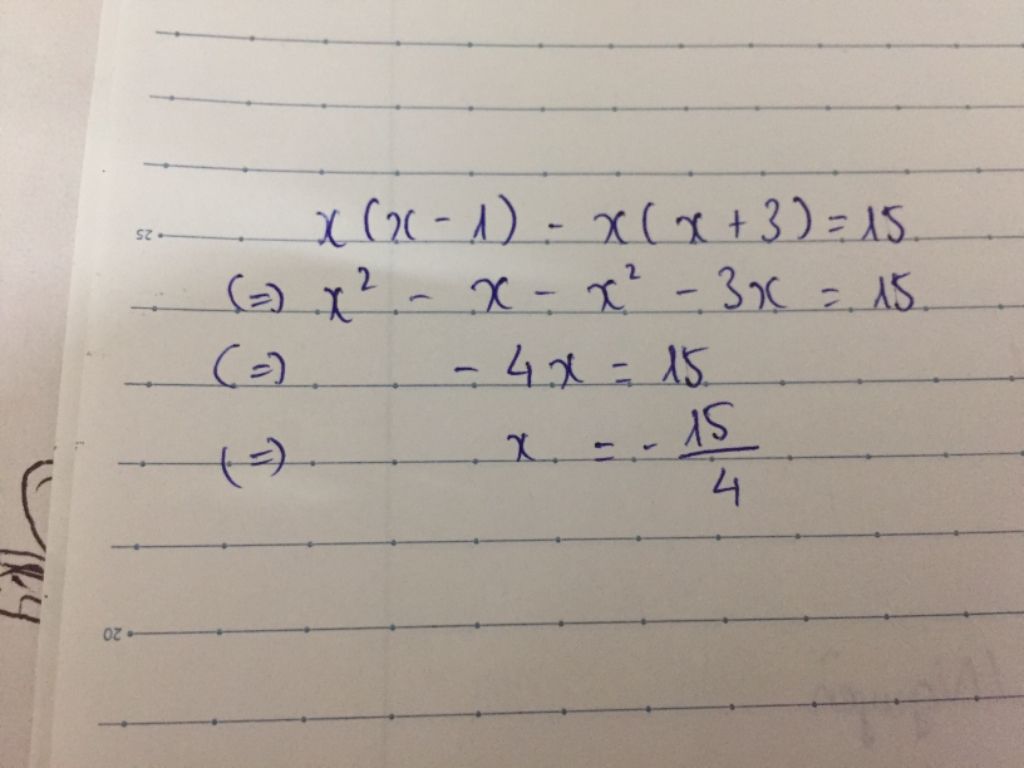 x(x-1) - x(x+3) = 15
(=) x² - x - x² - 3x = 15
(=) - 4x = 15
(=) x = - 15/4
25
20